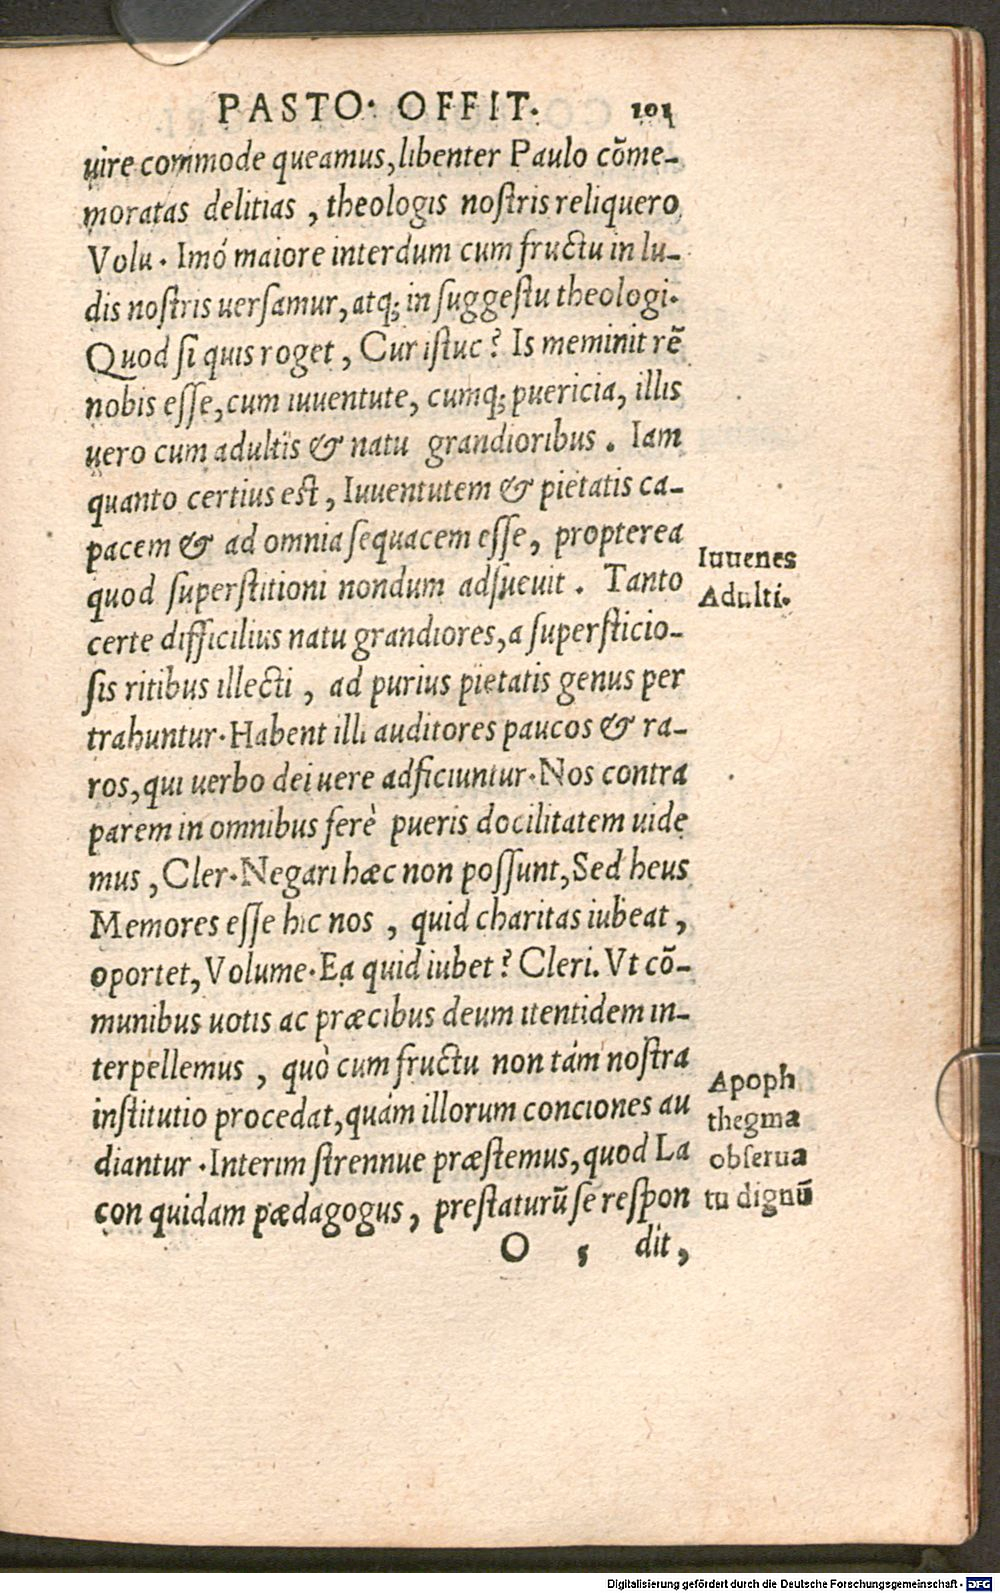 PASTO· OFFIT· 101
uire commode queamus, libenter Paulo cōme-
moratas delitias , theologis nostris reliquero
Volu· Imó maiore interdum cum fructu in lu-
dis nostris uersamur, atq; in suggestu theologi·
Quod si quis roget , Cur istuc? Is meminit rē
nobis esse, cum iuuentute, cumq; puericia, illis
uero cum adultis & natu grandioribus . Iam
quanto certius est , Iuuentutem & pietatis ca-
pacem & ad omnia sequacem esse, propterea
quod superstitioni nondum adsueuit . Tanto
certe difficilius natu grandiores, a supersticio-
sis ritibus illecti , ad purius pietatis genus per
trahuntur· Habent illi auditores paucos & ra-
ros, qui uerbo dei uere adficiuntur· Nos contra
parem in omnibus ferè pueris docilitatem uide
mus , Cler· Negari hæc non possunt, Sed heus
Memores esse hic nos , quid charitas iubeat ,
oportet, Volume· Ea quid iubet? Cleri. Vt cō-
munibus uotis ac præcibus deum itentidem in-
terpellemus , quò cum fructu non tám nostra
institutio procedat, quám illorum conciones au
diantur · Interim strennue præstemus, quod La
con quidam pædagogus , prestaturū se respon
O 5 dit ,
Iuuenes
Adulti·
Apoph
thegma
obserua
tu dignū
Digitalisierung gefördert durch die Deutsche Forschungsgemeinschaft - DFG